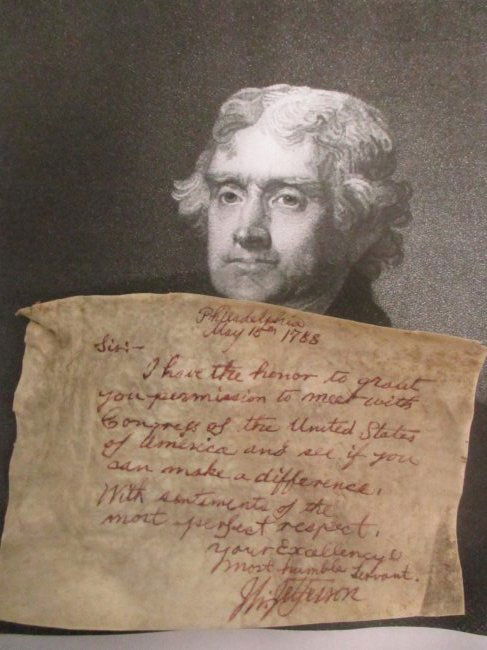 Philadelphia
May 15th 1788
Sir:-
I have the honor to grant
you permission to meet with
Congress of the United States
of America and see if you
can make a difference.
With sentiments of the
most perfect respect,
your Excellency's
most humble servant.
Th: Jefferson